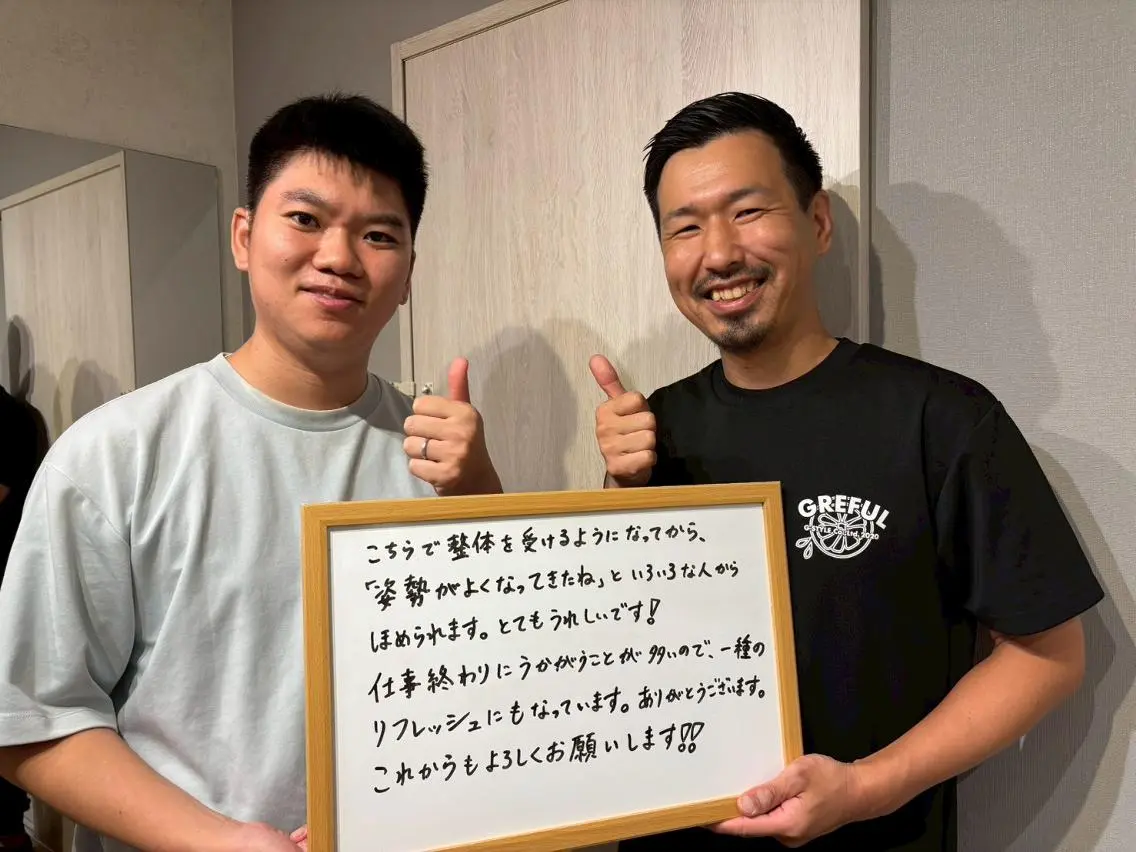 こちらで整体を受けるようになってから、
「姿勢がよくなってきたね」といろいろな人から
ほめられます。とてもうれしいです!
仕事終わりにうかがうことが多いので、一種の
リフレッシュにもなっています。ありがとうございます。
これからもよろしくお願いします!!
GREFUL
G-STYLE Co.,Ltd. 2020